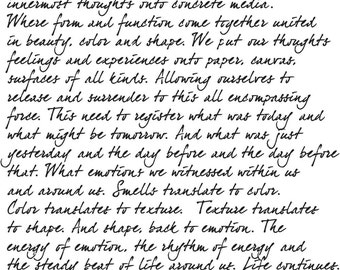 innermost thoughts onto concrete media.
Where form and function come together united
in beauty, color and shape. We put our thoughts
feelings and experiences onto paper, canvas,
surfaces of all kinds. Allowing ourselves to
release and surrender to this all encompassing
force. This need to register what was today and
what might be tomorrow. And what was just
yesterday and the day before and the day before
that. What emotions we witnessed within us
and around us. Smells translate to color.
Color translates to texture. Texture translates
to shape. And shape, back to emotion. The
energy of emotion, the rhythm of energy and
the steady beat of life around us. Life continues.